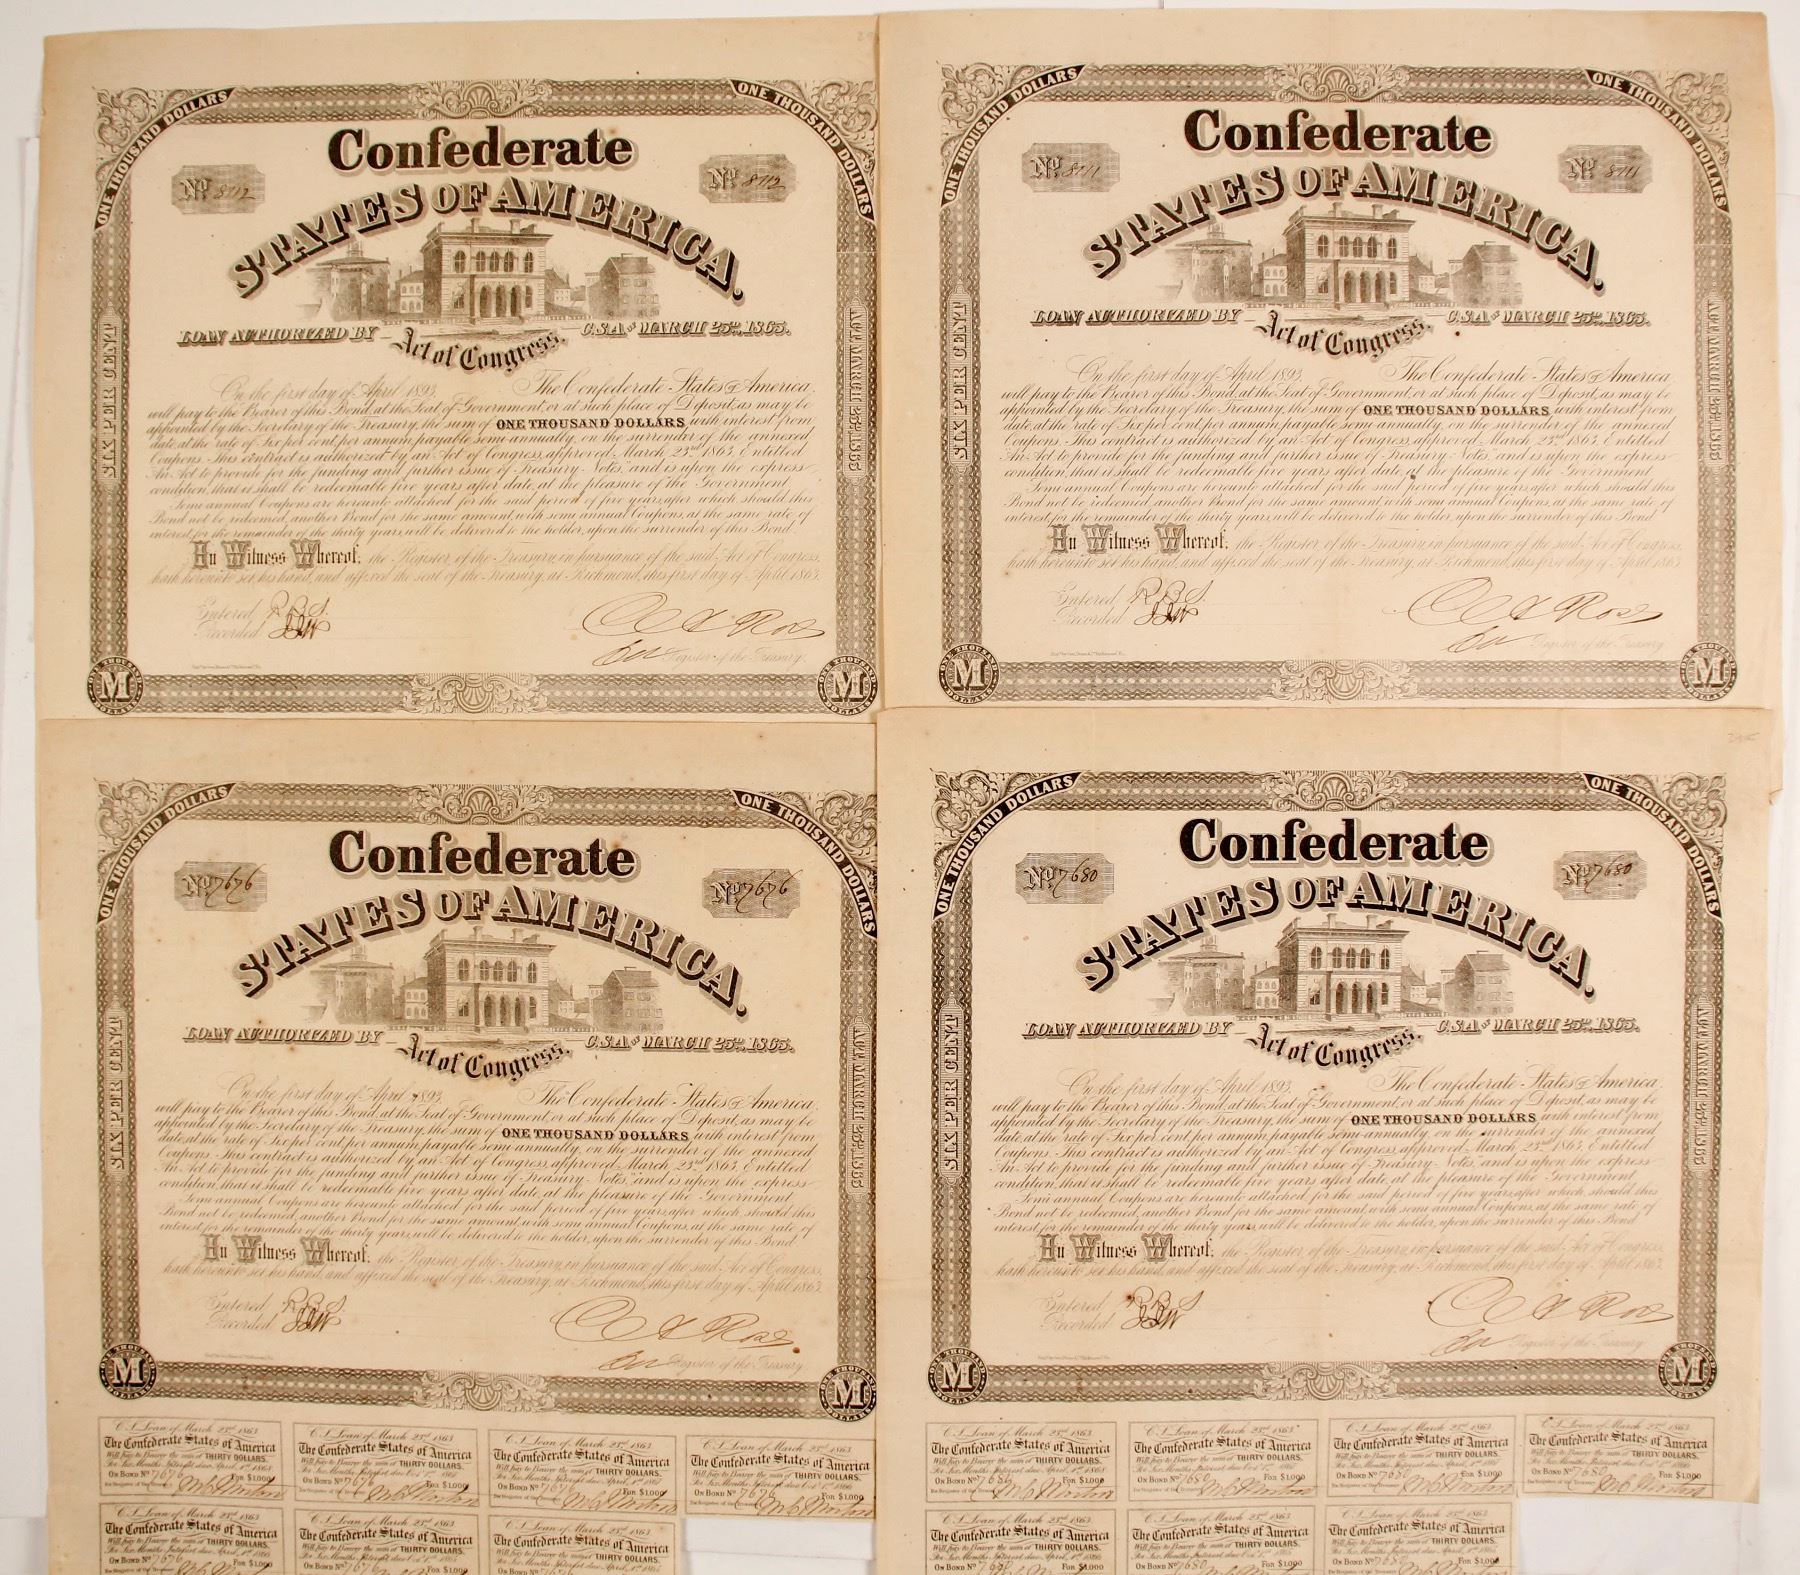 ONE THOUSAND DOLLARS
ONE THOUSAND DOLLARS
Confederate
No 8712
No 8712
STATES OF AMERICA.
LOAN AUTHORIZED BY
Act of Congress.
C.S.A. OF MARCH 23RD, 1863.
SIX PER CENT
ACT MARCH 23RD 1863
On the first day of April 1893, The Confederate States of America,
will pay to the Bearer of this Bond, at the Seat of Government, or at such place of Deposit, as may be
appointed by the Secretary of the Treasury, the sum of ONE THOUSAND DOLLARS, with interest from
date, at the rate of Six per cent, per annum, payable semi-annually, on the surrender of the annexed
Coupons. This contract is authorized by an Act of Congress, approved March 23rd 1863, Entitled
An Act to provide for the funding and further issue of Treasury Notes, and is upon the express
condition, that it shall be redeemable five years after date, at the pleasure of the Government
Semi annual Coupons are hereunto attached for the said period of five years, after which should this
Bond not be redeemed, another Bond for the same amount, with semi annual Coupons, at the same rate of
interest, for the remainder of the thirty years, will be delivered to the holder, upon the surrender of this Bond
In Witness Whereof, the Register of the Treasury, in pursuance of the said Act of Congress,
hath hereunto set his hand, and affixed the seal of the Treasury, at Richmond, this first day of April 1863.
Entered, R.B.S.
Recorded
Register of the Treasury.
ONE THOUSAND DOLLARS M
ONE THOUSAND DOLLARS M
ONE THOUSAND DOLLARS
ONE THOUSAND DOLLARS
Confederate
No 8711
No 8711
STATES OF AMERICA.
LOAN AUTHORIZED BY
Act of Congress.
C.S.A. OF MARCH 23RD, 1863.
SIX PER CENT
ACT MARCH 23RD 1863
On the first day of April 1893, The Confederate States of America,
will pay to the Bearer of this Bond, at the Seat of Government, or at such place of Deposit, as may be
appointed by the Secretary of the Treasury, the sum of ONE THOUSAND DOLLARS, with interest from
date, at the rate of Six per cent, per annum, payable semi-annually, on the surrender of the annexed
Coupons. This contract is authorized by an Act of Congress, approved March 23rd 1863, Entitled
An Act to provide for the funding and further issue of Treasury Notes, and is upon the express
condition, that it shall be redeemable five years after date, at the pleasure of the Government
Semi annual Coupons are hereunto attached for the said period of five years, after which should this
Bond not be redeemed, another Bond for the same amount, with semi annual Coupons, at the same rate of
interest, for the remainder of the thirty years, will be delivered to the holder, upon the surrender of this Bond
In Witness Whereof, the Register of the Treasury, in pursuance of the said Act of Congress,
hath hereunto set his hand, and affixed the seal of the Treasury, at Richmond, this first day of April 1863
Entered, R.B.S.
Recorded
Register of the Treasury.
ONE THOUSAND DOLLARS M
ONE THOUSAND DOLLARS M
ONE THOUSAND DOLLARS
ONE THOUSAND DOLLARS
Confederate
No 7676
No 7676
STATES OF AMERICA.
LOAN AUTHORIZED BY
Act of Congress.
C.S.A. OF MARCH 23RD, 1863.
SIX PER CENT
ACT MARCH 23RD 1863
On the first day of April 1893, The Confederate States of America,
will pay to the Bearer of this Bond, at the Seat of Government, or at such place of Deposit, as may be
appointed by the Secretary of the Treasury, the sum of ONE THOUSAND DOLLARS, with interest from
date, at the rate of Six per cent, per annum, payable semi-annually, on the surrender of the annexed
Coupons. This contract is authorized by an Act of Congress, approved March 23rd 1863, Entitled
An Act to provide for the funding and further issue of Treasury Notes, and is upon the express
condition, that it shall be redeemable five years after date, at the pleasure of the Government
Semi annual Coupons are hereunto attached for the said period of five years, after which should this
Bond not be redeemed, another Bond for the same amount, with semi annual Coupons, at the same rate of
interest, for the remainder of the thirty years, will be delivered to the holder, upon the surrender of this Bond
In Witness Whereof, the Register of the Treasury, in pursuance of the said Act of Congress,
hath hereunto set his hand, and affixed the seal of the Treasury, at Richmond, this first day of April 1863
Entered, R.B.S.
Recorded
Register of the Treasury
ONE THOUSAND DOLLARS M
ONE THOUSAND DOLLARS M
ONE THOUSAND DOLLARS
ONE THOUSAND DOLLARS
Confederate
No 7680
No 7680
STATES OF AMERICA.
LOAN AUTHORIZED BY
Act of Congress.
C.S.A. OF MARCH 23RD, 1863.
SIX PER CENT
ACT MARCH 23RD 1863
On the first day of April 1893, The Confederate States of America,
will pay to the Bearer of this Bond, at the Seat of Government, or at such place of Deposit, as may be
appointed by the Secretary of the Treasury, the sum of ONE THOUSAND DOLLARS, with interest from
date, at the rate of Six per cent, per annum, payable semi-annually, on the surrender of the annexed
Coupons. This contract is authorized by an Act of Congress, approved March 23rd 1863, Entitled
An Act to provide for the funding and further issue of Treasury Notes, and is upon the express
condition, that it shall be redeemable five years after date, at the pleasure of the Government
Semi annual Coupons are hereunto attached for the said period of five years, after which should this
Bond not be redeemed, another Bond for the same amount, with semi annual Coupons, at the same rate of
interest, for the remainder of the thirty years, will be delivered to the holder, upon the surrender of this Bond
In Witness Whereof, the Register of the Treasury, in pursuance of the said Act of Congress,
hath hereunto set his hand, and affixed the seal of the Treasury, at Richmond, this first day of April 1863
Entered, R.B.S.
Recorded
Register of the Treasury.
ONE THOUSAND DOLLARS M
ONE THOUSAND DOLLARS M
C.S. Loan of March 23rd 1863
The Confederate States of America
Will pay to Bearer the sum of THIRTY DOLLARS.
ON BOND No 7676 FOR $1,000
C.S. Loan of March 23rd 1863
The Confederate States of America
Will pay to Bearer the sum of THIRTY DOLLARS.
ON BOND No 7676 FOR $1,000
C.S. Loan of March 23rd 1863
The Confederate States of America
Will pay to Bearer the sum of THIRTY DOLLARS.
ON BOND No 7676 FOR $1,000
C.S. Loan of March 23rd 1863
The Confederate States of America
Will pay to Bearer the sum of THIRTY DOLLARS.
ON BOND No 7676 FOR $1,000
C.S. Loan of March 23rd 1863
The Confederate States of America
Will pay to Bearer the sum of THIRTY DOLLARS.
ON BOND No 7680 FOR $1,000
C.S. Loan of March 23rd 1863
The Confederate States of America
Will pay to Bearer the sum of THIRTY DOLLARS.
ON BOND No 7680 FOR $1,000
C.S. Loan of March 23rd 1863
The Confederate States of America
Will pay to Bearer the sum of THIRTY DOLLARS.
ON BOND No 7680 FOR $1,000
C.S. Loan of March 23rd 1863
The Confederate States of America
Will pay to Bearer the sum of THIRTY DOLLARS.
ON BOND No 7680 FOR $1,000
C.S. Loan of March 23rd 1863
The Confederate States of America
Will pay to Bearer the sum of THIRTY DOLLARS.
ON BOND No 7676 FOR $1,000
C.S. Loan of March 23rd 1863
The Confederate States of America
Will pay to Bearer the sum of THIRTY DOLLARS.
ON BOND No 7676 FOR $1,000
C.S. Loan of March 23rd 1863
The Confederate States of America
Will pay to Bearer the sum of THIRTY DOLLARS.
C.S. Loan of March 23rd 1863
The Confederate States of America
Will pay to Bearer the sum of THIRTY DOLLARS.
ON BOND No 7680 FOR $1,000
C.S. Loan of March 23rd 1863
The Confederate States of America
Will pay to Bearer the sum of THIRTY DOLLARS.
ON BOND No 7680 FOR $1,000
C.S. Loan of March 23rd 1863
The Confederate States of America
Will pay to Bearer the sum of THIRTY DOLLARS.
ON BOND No 7680 FOR $1,000